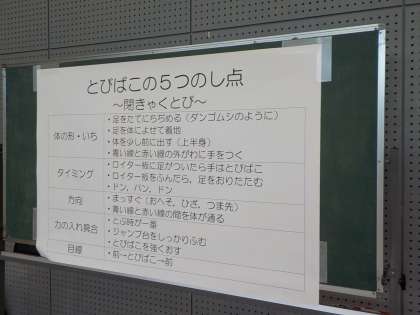 とびばこの5つのし点
〜閉きゃくとび〜
体の形・いち
・足をたてにちぢめる(ダンゴムシのように)
・足を体によせて着地
・体を少し前に出す(上半身)
・青い線と赤い線の外がわに手をつく
タイミング
・ロイター板に足がついたら手はとびばこ
・ロイター板をふんだら、足をおりたたむ
・ドン、パン、ドン
方向
・まっすぐ(おへそ、ひざ、つま先)
・青い線と赤い線の間を体が通る
力の入れ具合
・とぶ時が一番
・ジャンプ台をしっかりふむ
・とびばこを強くおす
目線
・前→とびばこ→前